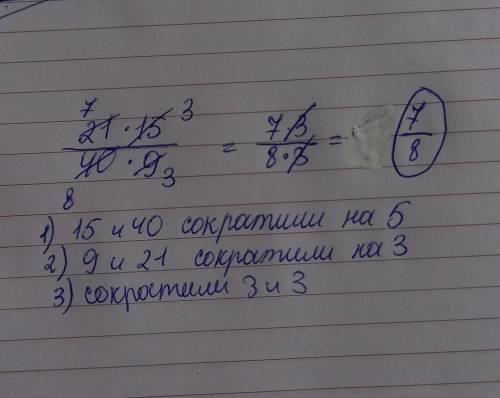 7 3
21 · 15 / 40 · 9 = 7 3 / 8 · 3 = 7/8
8 3
1) 15 и 40 сократили на 5
2) 9 и 21 сократили на 3
3) сократили 3 и 3